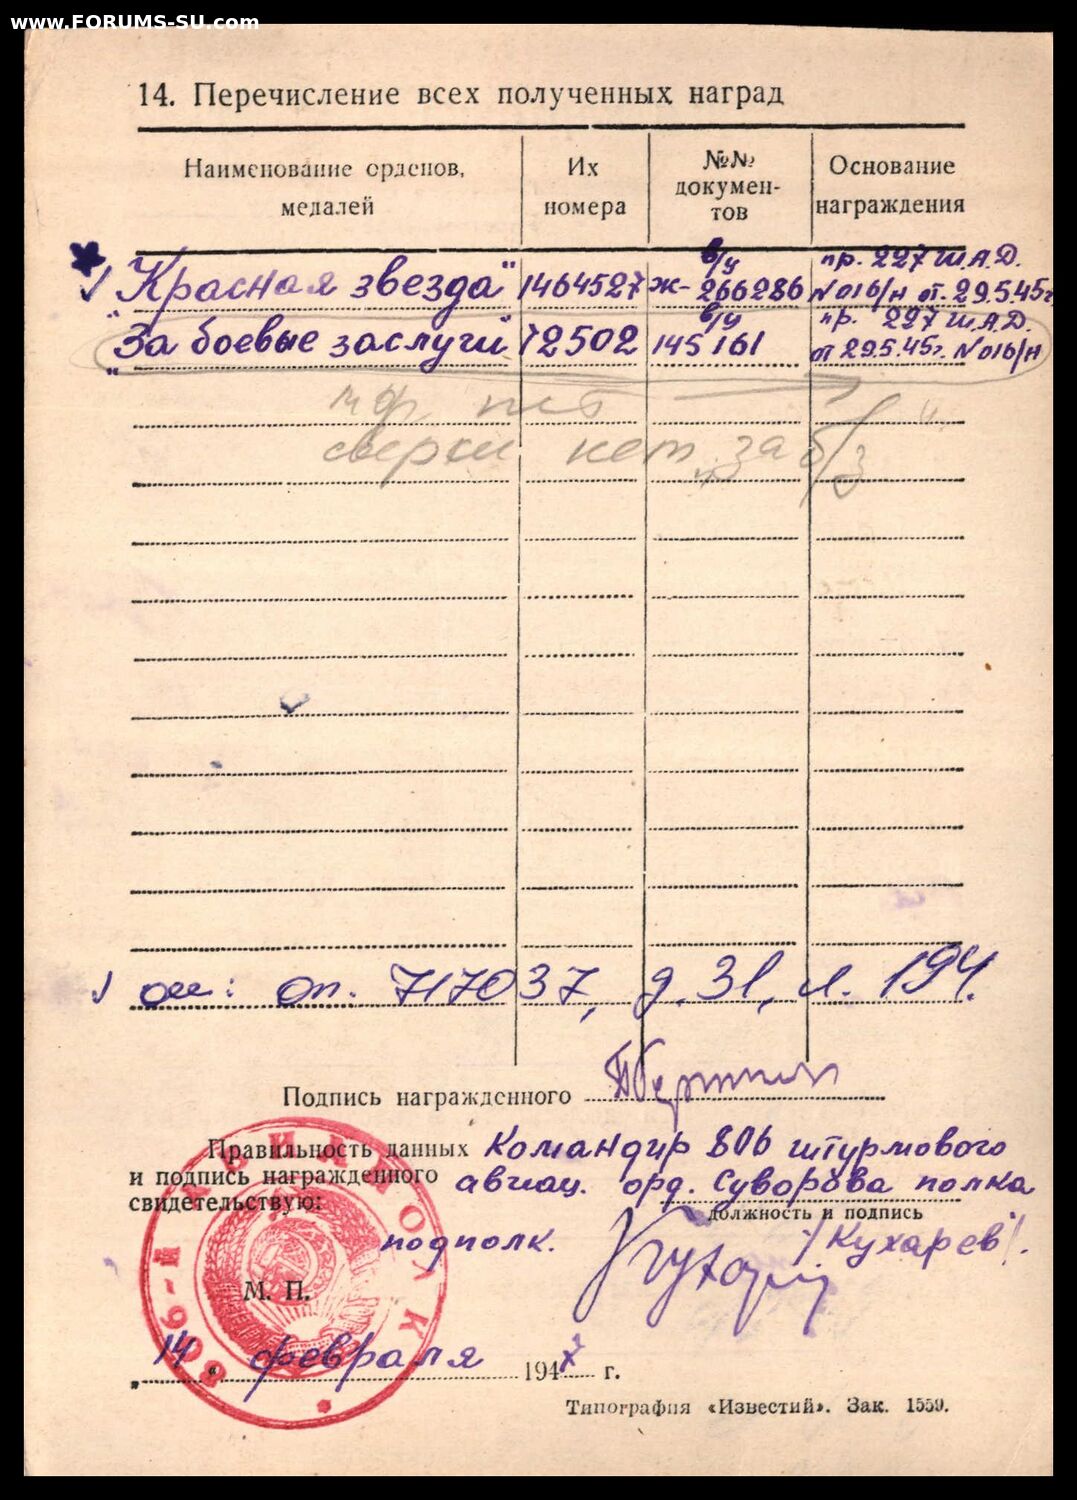 www.FORUMS-SU.com
14. Перечисление всех полученных наград
Наименование орденов, медалей
Их номера
№№ докумен-
тов
Основание награждения
"Красная звезда" 1464527 в/у Ж-266286 пр. 227 Ш.А.Д. N016/н от. 29.5.45г.
"За боевые заслуги" 72502 в/у 145161 пр. 227 Ш.А.Д. от 29.5.45г. N016/н
сверки нет за б/з
оп. 717037, д. 31, л. 194.
Подпись награжденного
Правильность данных Командир 806 штурмового
и подпись награжденного авиац. орд. Суворова полка
свидетельствую:
должность и подпись
подполк. /Кухарев/.
М. П.
806-Й АВИАПОЛК
„14" февраля 1947 г.
Типография «Известий». Зак. 1559.